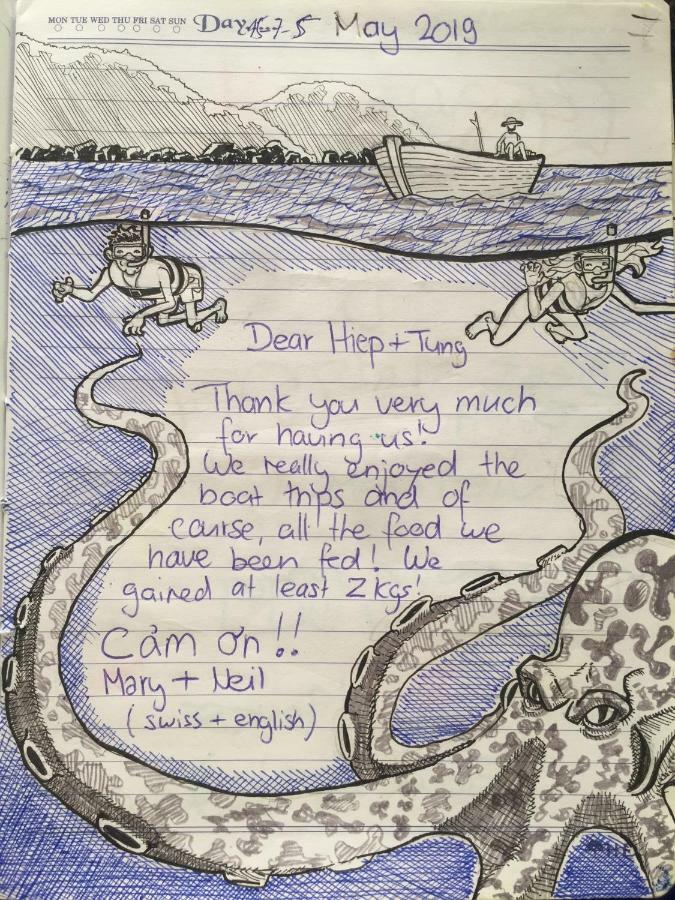 MON TUE WED THU FRI SAT SUN
Day 7-5 May 2019
Dear Hiep + Tung
Thank you very much
for having us!
We really enjoyed the
boat trips and of
course, all the food we
have been fed! We
gained at least 2 kgs!
Cảm ơn!!
Mary + Neil
(swiss + english)